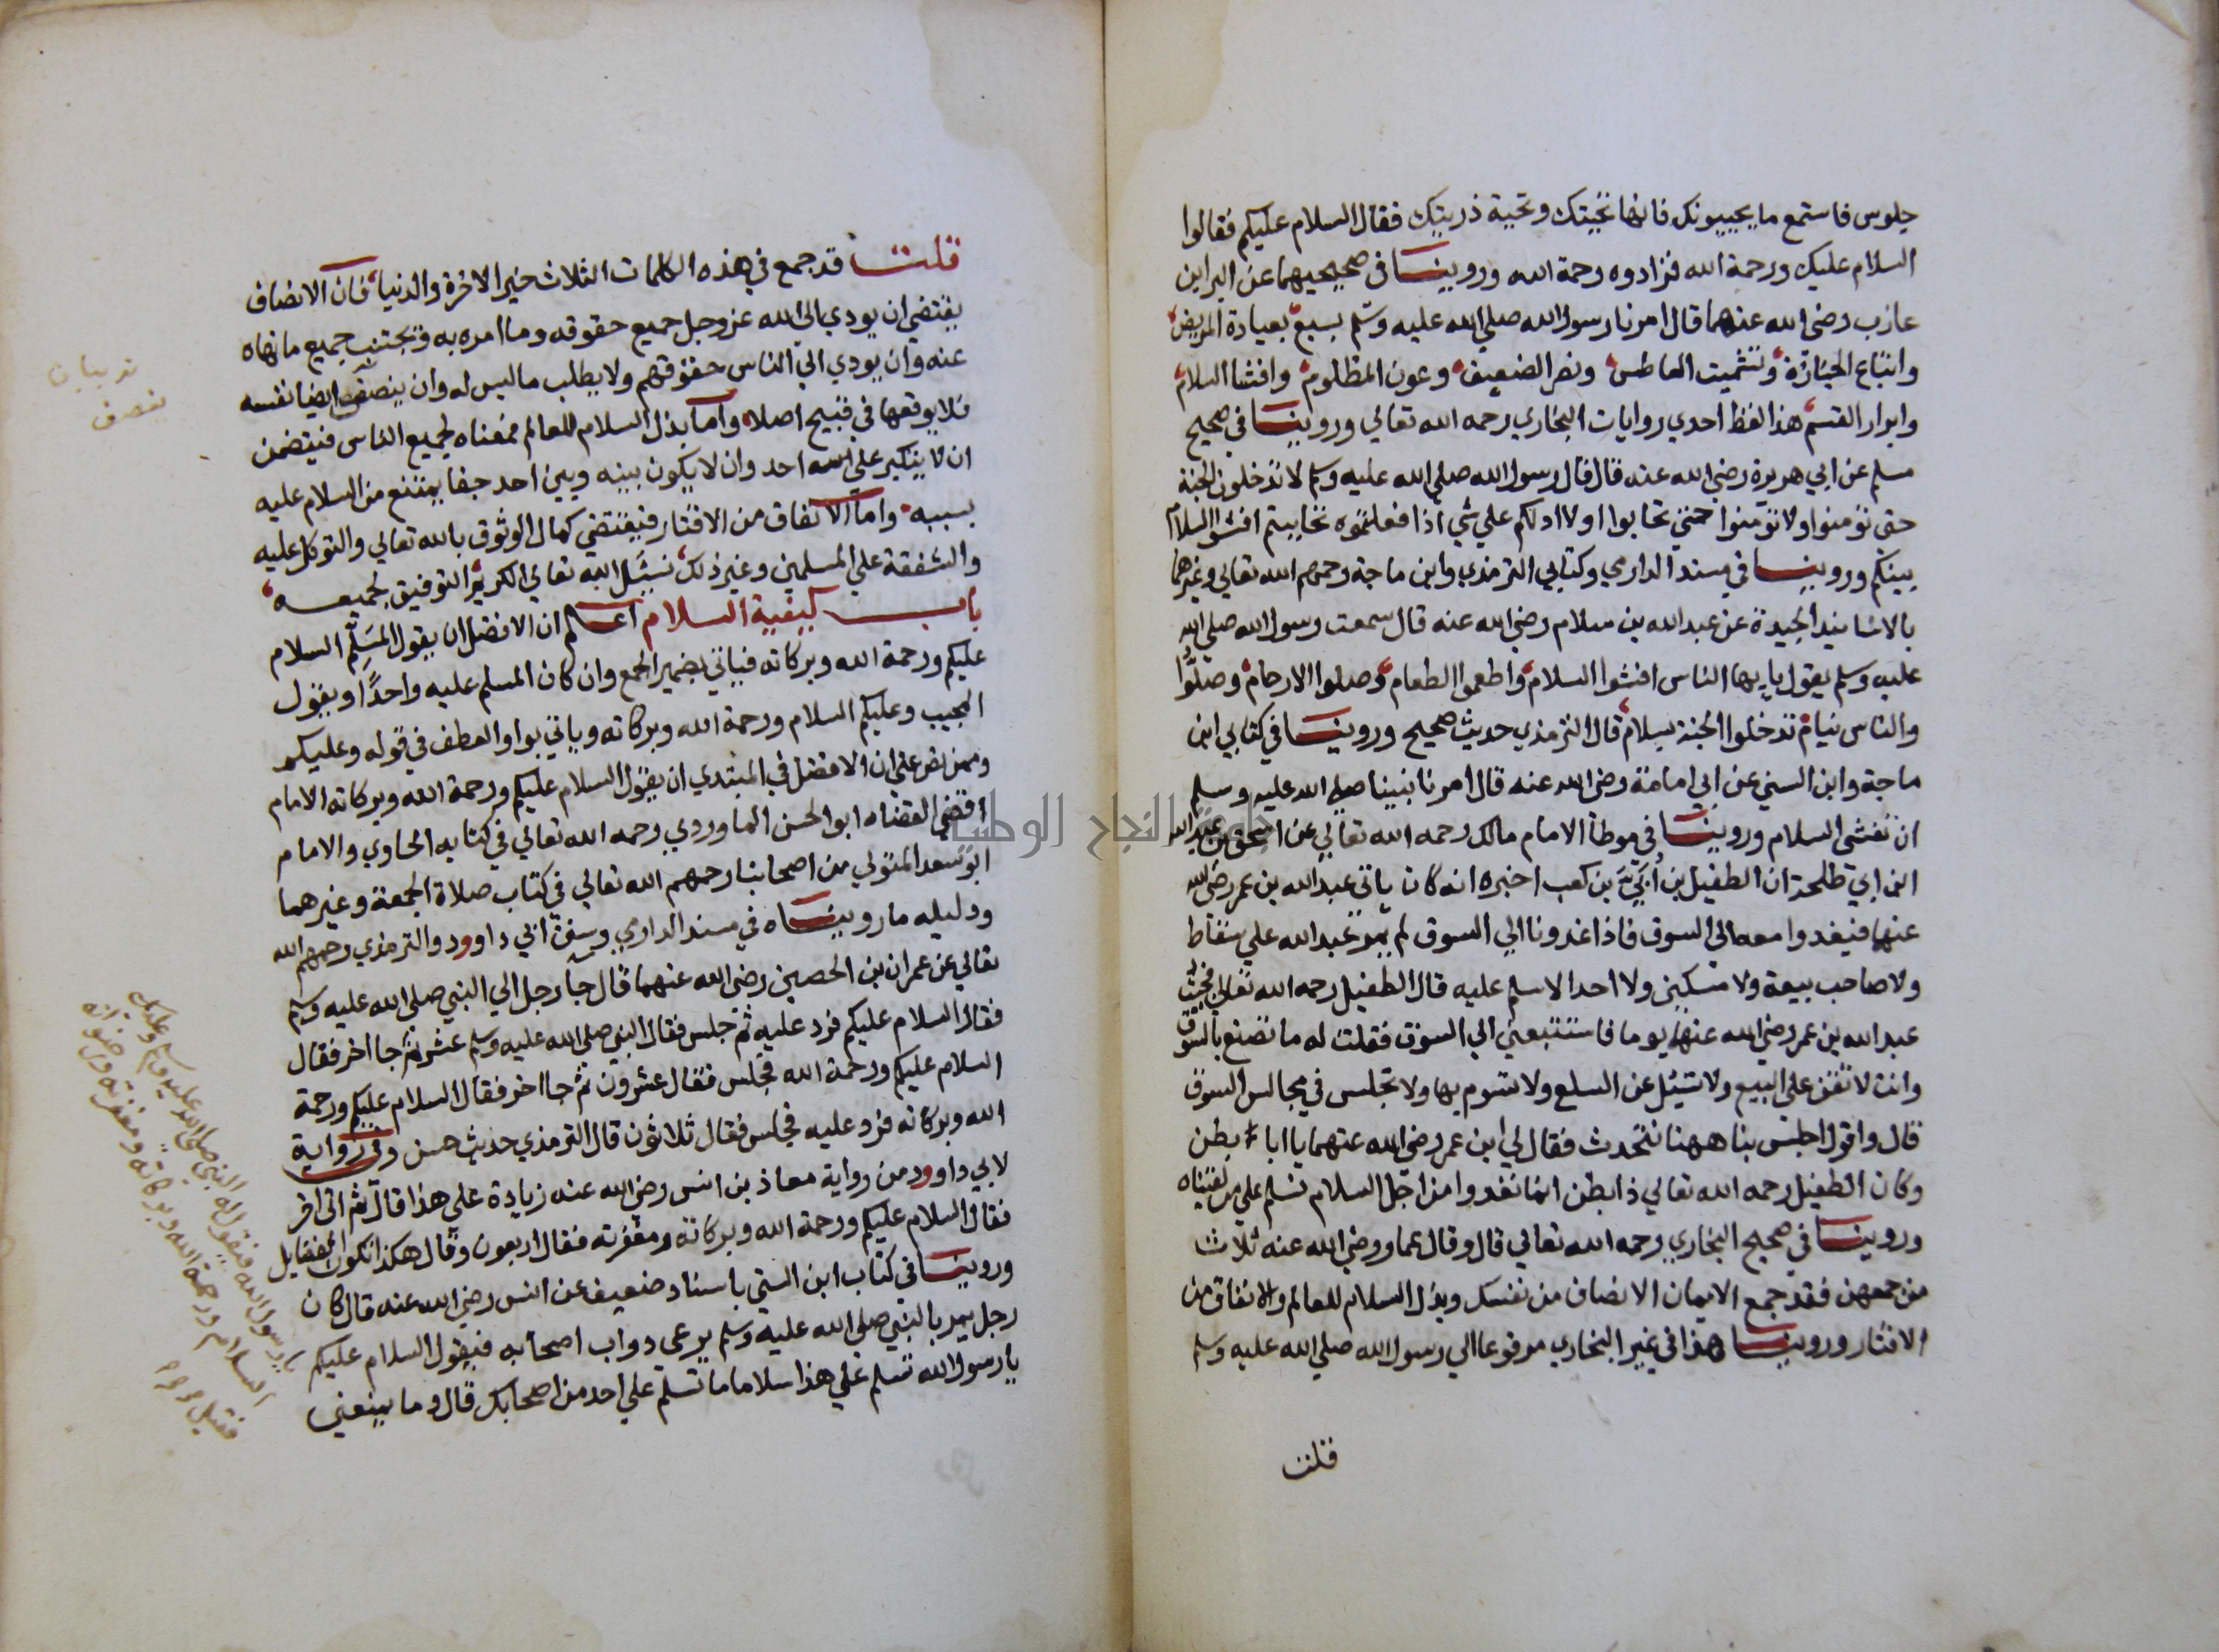 جلوس فاستمع ما يحييونك فانها تحيتك وتحية ذريتك فقال السلام عليكم فقالوا
السلام عليك ورحمة الله فزادوه رحمة الله وروينا في صحيحيهما عن البرا بن
عازب رضي الله عنهما قال امرنا رسول الله صلي الله عليه وسلم بسبع بعيادة المريض
واتباع الجنازة وتشميت العاطس ونصر الضعيف وعون المظلوم وافشا السلام
وابرار القسم هذا لفظ احدي روايات البخاري رحمه الله تعالي وروينا في صحيح
مسلم عن ابي هريرة رضي الله عنه قال قال رسول الله صلي الله عليه وسلم لا تدخلون الجنة
حتي تؤمنوا ولا تؤمنوا حتي تحابوا اولا ادلكم علي شي اذا فعلتموه تحاببتم افشوا السلام
بينكم وروينا في مسند الدارمي وكتابي الترمذي وابن ماجة رحمهم الله تعالي وغيرهما
بالاسانيد الجيدة عن عبد الله بن سلام رضي الله عنه قال سمعت رسول الله صلي الله
عليه وسلم يقول يا يها الناس افشوا السلام واطعموا الطعام وصلوا الارحام وصلوا
والناس نيام تدخلوا الجنة بسلام قال الترمذي حديث صحيح وروينا في كتابي ابن
ماجة وابن السني عن ابي امامة رضي الله عنه قال امرنا نبينا صلي الله عليه وسلم
ان نفشي السلام وروينا في موطا الامام مالك رحمه الله تعالي عن اسحق بن عبد الله
ابن ابي طلحة ان الطفيل بن ابي بن كعب اخبره انه كان ياتي عبد الله بن عمر رضي الله
عنهما فيغدوا معه الي السوق فاذا غدونا الي السوق لم يمر عبد الله علي سقاط
ولا صاحب بيعة ولا مسكين ولا احد الا سلم عليه قال الطفيل رحمه الله تعالي فجيت
عبد الله بن عمر رضي الله عنهما يوما فاستتبعني الي السوق فقلت له ما تصنع بالسوق
وانت لا تقف علي البيع ولا تسئل عن السلع ولا تسوم بها ولا تجلس في مجالس السوق
قال واقول اجلس بنا ههنا نتحدث فقال لي ابن عمر رضي الله عنهما يا ابا بطن
وكان الطفيل رحمه الله تعالي ذا بطن انما نغدوا من اجل السلام نسلم علي من لقيناه
وروينا في صحيح البخاري رحمه الله تعالي قال وقال عمار رضي الله عنه ثلاث
من جمعهن فقد جمع الايمان الانصاف من نفسك وبذل السلام للعالم والانفاق من
الاقتار وروينا هذا في غير البخاري مرفوعا الي رسول الله صلي الله عليه وسلم
قلت
قلت قد جمع في هذه الكلمات الثلاث خير الاخرة والدنيا فان الانصاف
يقتضي ان يودي الي الله عز وجل جميع حقوقه وما امره به ويجتنب جميع ما نهاه
عنه وان يودي الي الناس حقوقهم ولا يطلب ما ليس له وان ينصف ايضا نفسه
فلا يوقعها في قبيح اصلا واما بذل السلام للعالم فمعناه لجميع الناس فيتضمن
ان لا يتكبر علي احد وان لا يكون بينه وبين احد جفا يمتنع من السلام عليه
بسببه واما الانفاق من الاقتار فيقتضي كمال الوثوق بالله تعالي والتوكل عليه
والشفقة علي المسلمين وغير ذلك نسئل الله تعالي الكريم التوفيق لجميعه
باب كيفية السلام اعلم ان الافضل ان يقول المسلم السلام
عليكم ورحمة الله وبركاته فياتي بضمير الجمع وان كان المسلم عليه واحدا ويقول
المجيب وعليكم السلام ورحمة الله وبركاته وياتي بواو العطف في قوله وعليكم
وممن نص علي ان الافضل في المبتدي ان يقول السلام عليكم ورحمة الله وبركاته الامام
اقضي القضاه ابو الحسن الماوردي رحمه الله تعالي في كتابه الحاوي والامام
ابو سعد المتولي من اصحابنا رحمهم الله تعالي في كتاب صلاة الجمعة وغيرهما
ودليله ما رويناه في مسند الدارمي وسنن ابي داوود والترمذي رحمهم الله
تعالي عن عمران بن الحصين رضي الله عنهما قال جا رجل الي النبي صلي الله عليه وسلم
فقال السلام عليكم فرد عليه ثم جلس فقال النبي صلي الله عليه وسلم عشر ثم جا اخر فقال
السلام عليكم ورحمة الله فجلس فقال عشرون ثم جا اخر فقال السلام عليكم ورحمة
الله وبركاته فرد عليه فجلس فقال ثلاثون قال الترمذي حديث حسن وفي رواية
لابي داوود من رواية معاذ بن انس رضي الله عنه زيادة علي هذا قال ثم اتي اخر
فقال السلام عليكم ورحمة الله وبركاته ومغفرته فقال اربعون وقال هكذا تكون الفضايل
وروينا في كتاب ابن السني باسناد ضعيف عن انس رضي الله عنه قال كان
رجل يمر بالنبي صلي الله عليه وسلم يرعي دواب اصحابه فيقول السلام عليكم
يا رسول الله تسلم علي هذا سلاما ما تسلم علي احد من اصحابك قال وما يمنعني
ينصف
يرسول الله فيقول له النبي صلي الله عليه وسلم وعليك
السلام ورحمة الله وبركاته ومغفرته ورضوانه
فقيل